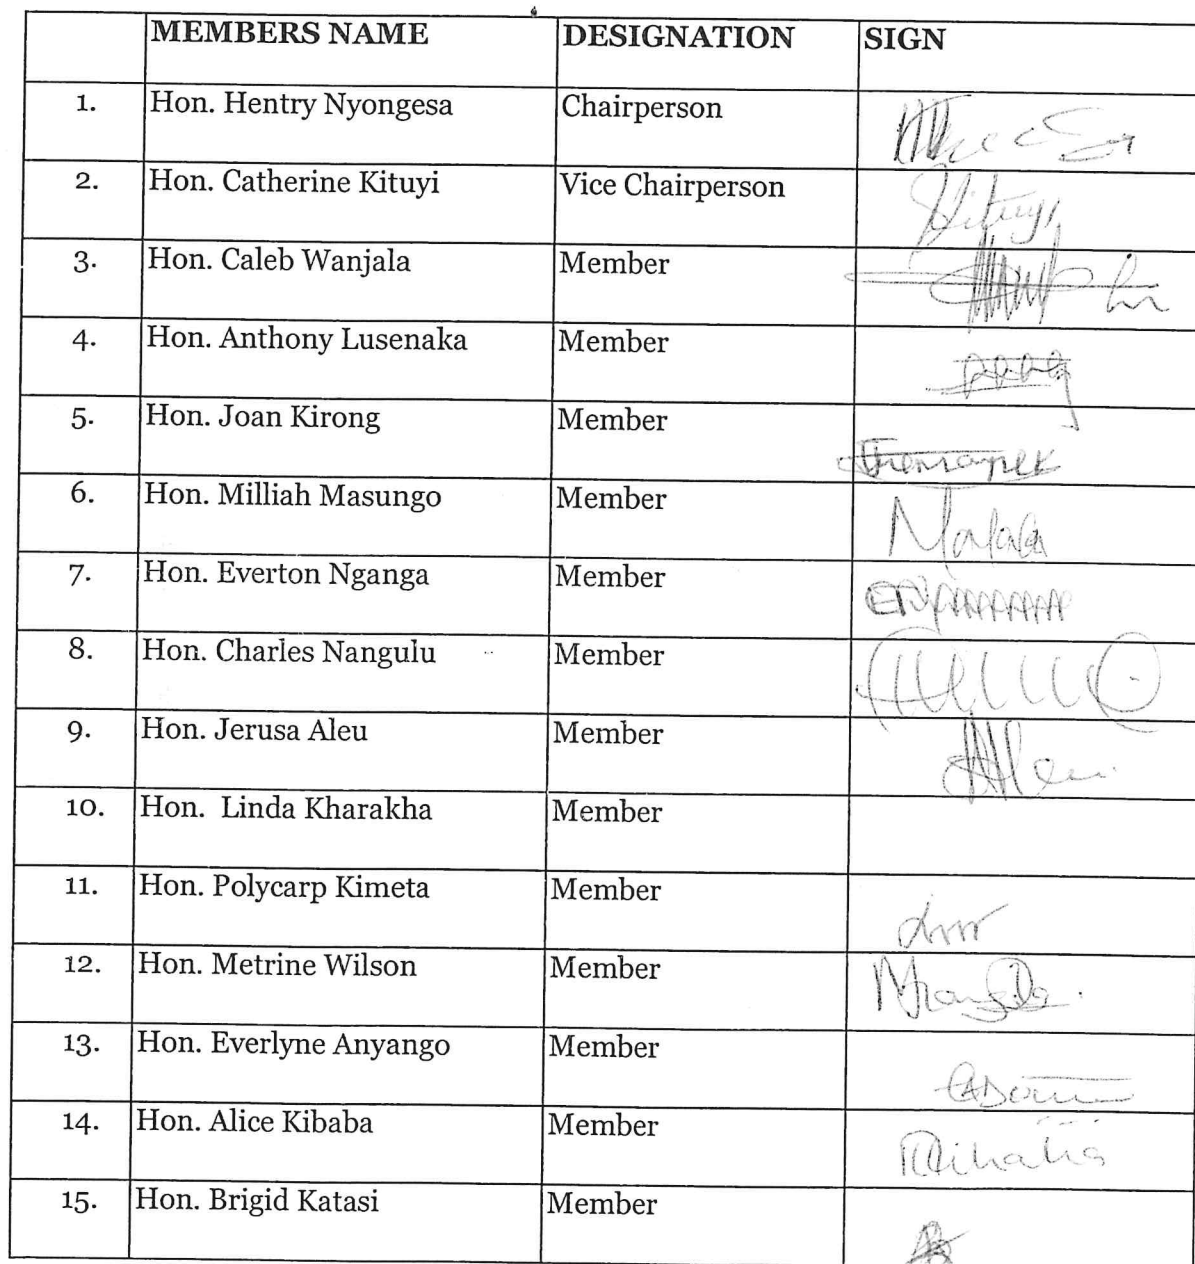 MEMBERS NAME DESIGNATION SIGN
1. Hon. Hentry Nyongesa Chairperson
2. Hon. Catherine Kituyi Vice Chairperson Kituyi
3. Hon. Caleb Wanjala Member
4. Hon. Anthony Lusenaka Member
5. Hon. Joan Kirong Member
6. Hon. Milliah Masungo Member
7. Hon. Everton Nganga Member
8. Hon. Charles Nangulu Member
9. Hon. Jerusa Aleu Member
10. Hon. Linda Kharakha Member
11. Hon. Polycarp Kimeta Member
12. Hon. Metrine Wilson Member
13. Hon. Everlyne Anyango Member
14. Hon. Alice Kibaba Member
15. Hon. Brigid Katasi Member